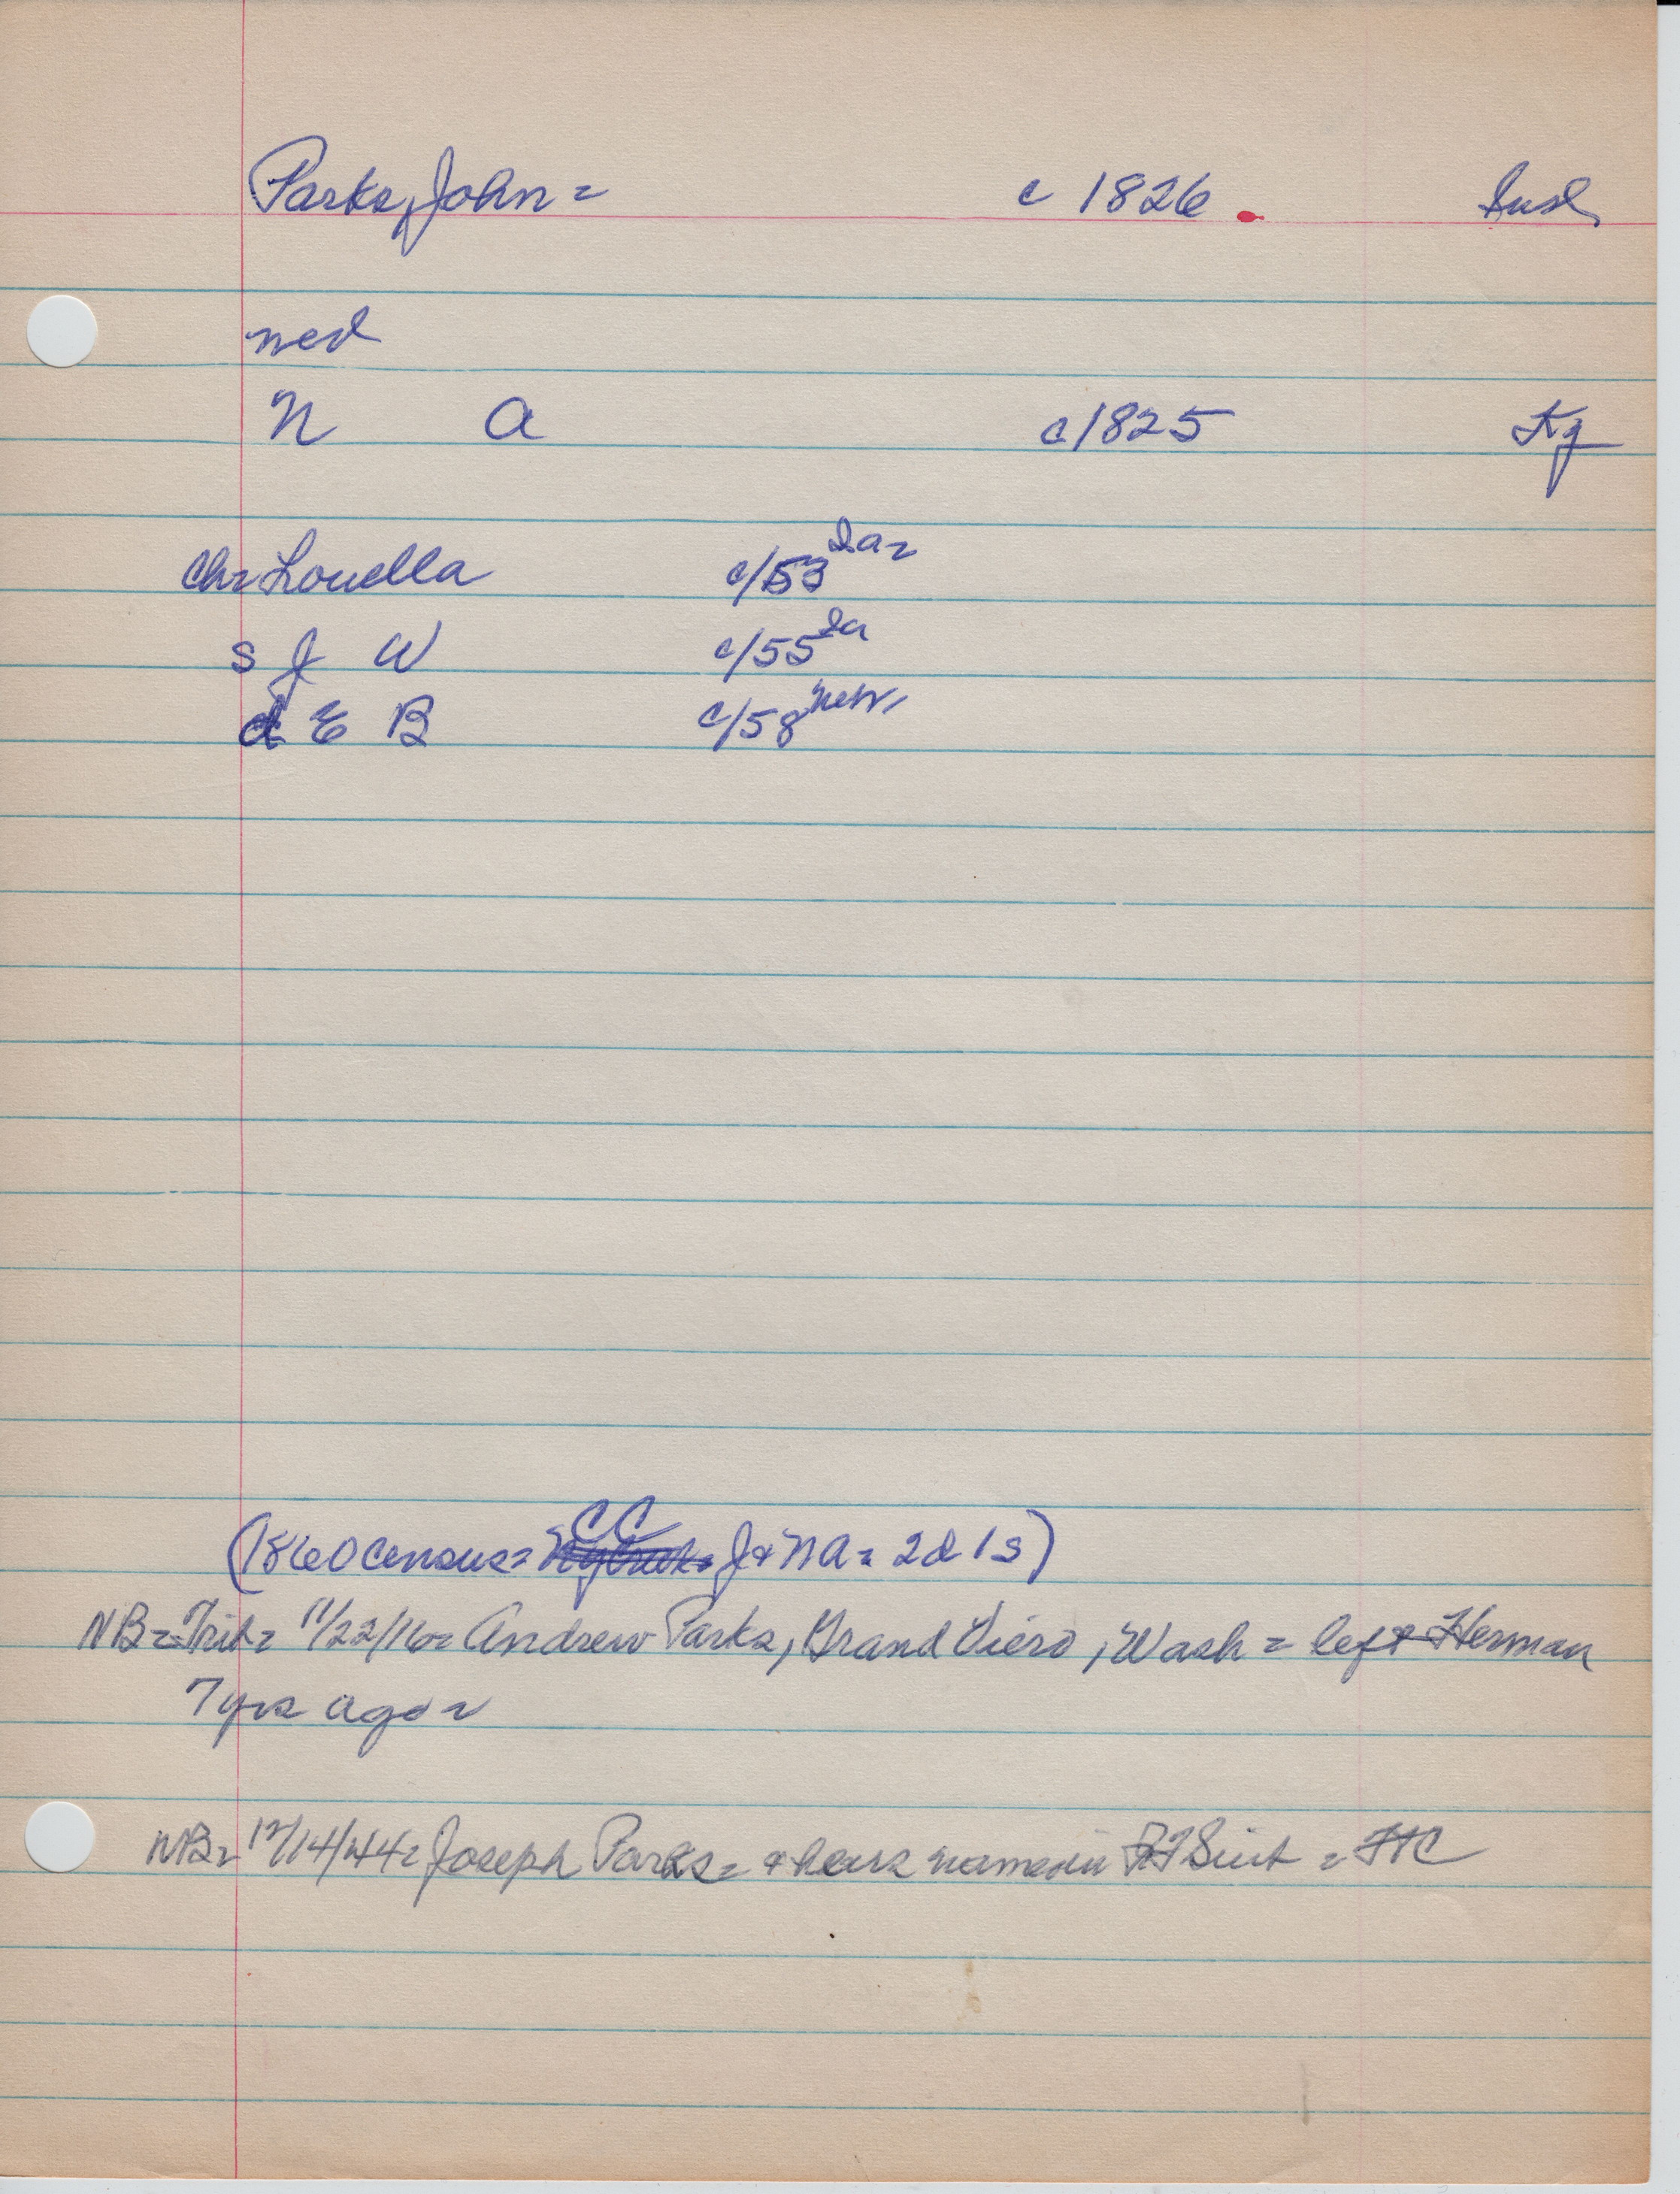 Parks, John = c 1826. Ind
med
N A c1825 Ky
Ch= Louella c/53 Ia=
s J W c/55 Ia
d E B c/58 Neb,
(1860 Census = CC J & N A = 2d 1s)
NB = Trib = 11/22/16 = Andrew Parks, Grand View, Wash = left Herman
7 yrs ago =
NB = 12/14/44 = Joseph Parks = & heirs named in = FTC